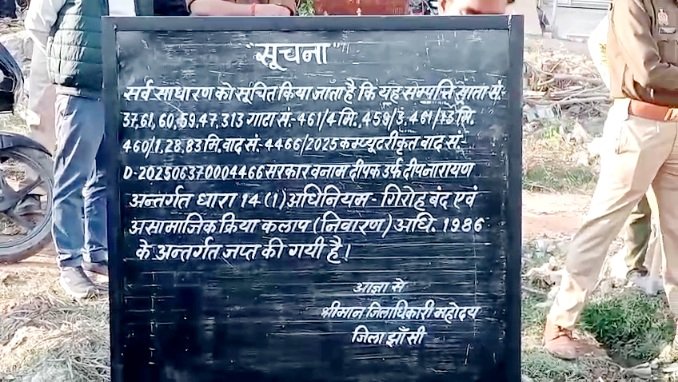 "सूचना"
सर्व साधारण को सूचित किया जाता है कि यह सम्पत्ति खाता सं.-
37,61,60,59,47,313 गाटा सं.-461/4 मि., 459/3, 461/73 मि.
460/1,28,83 नि. वाद सं.-4466/2025 कम्प्यूटरीकृत वाद सं.-
D-202506370004466 सरकार बनाम दीपक उर्फ दीपनारायण
अन्तर्गत धारा 14(1) अधिनियम-गिरोह बंद एवं
असामाजिक क्रिया कलाप (निवारण) अधि. 1986
के अन्तर्गत जप्त की गयी है।
आज्ञा से
श्रीमान जिलाधिकारी महोदय
जिला झाँसी